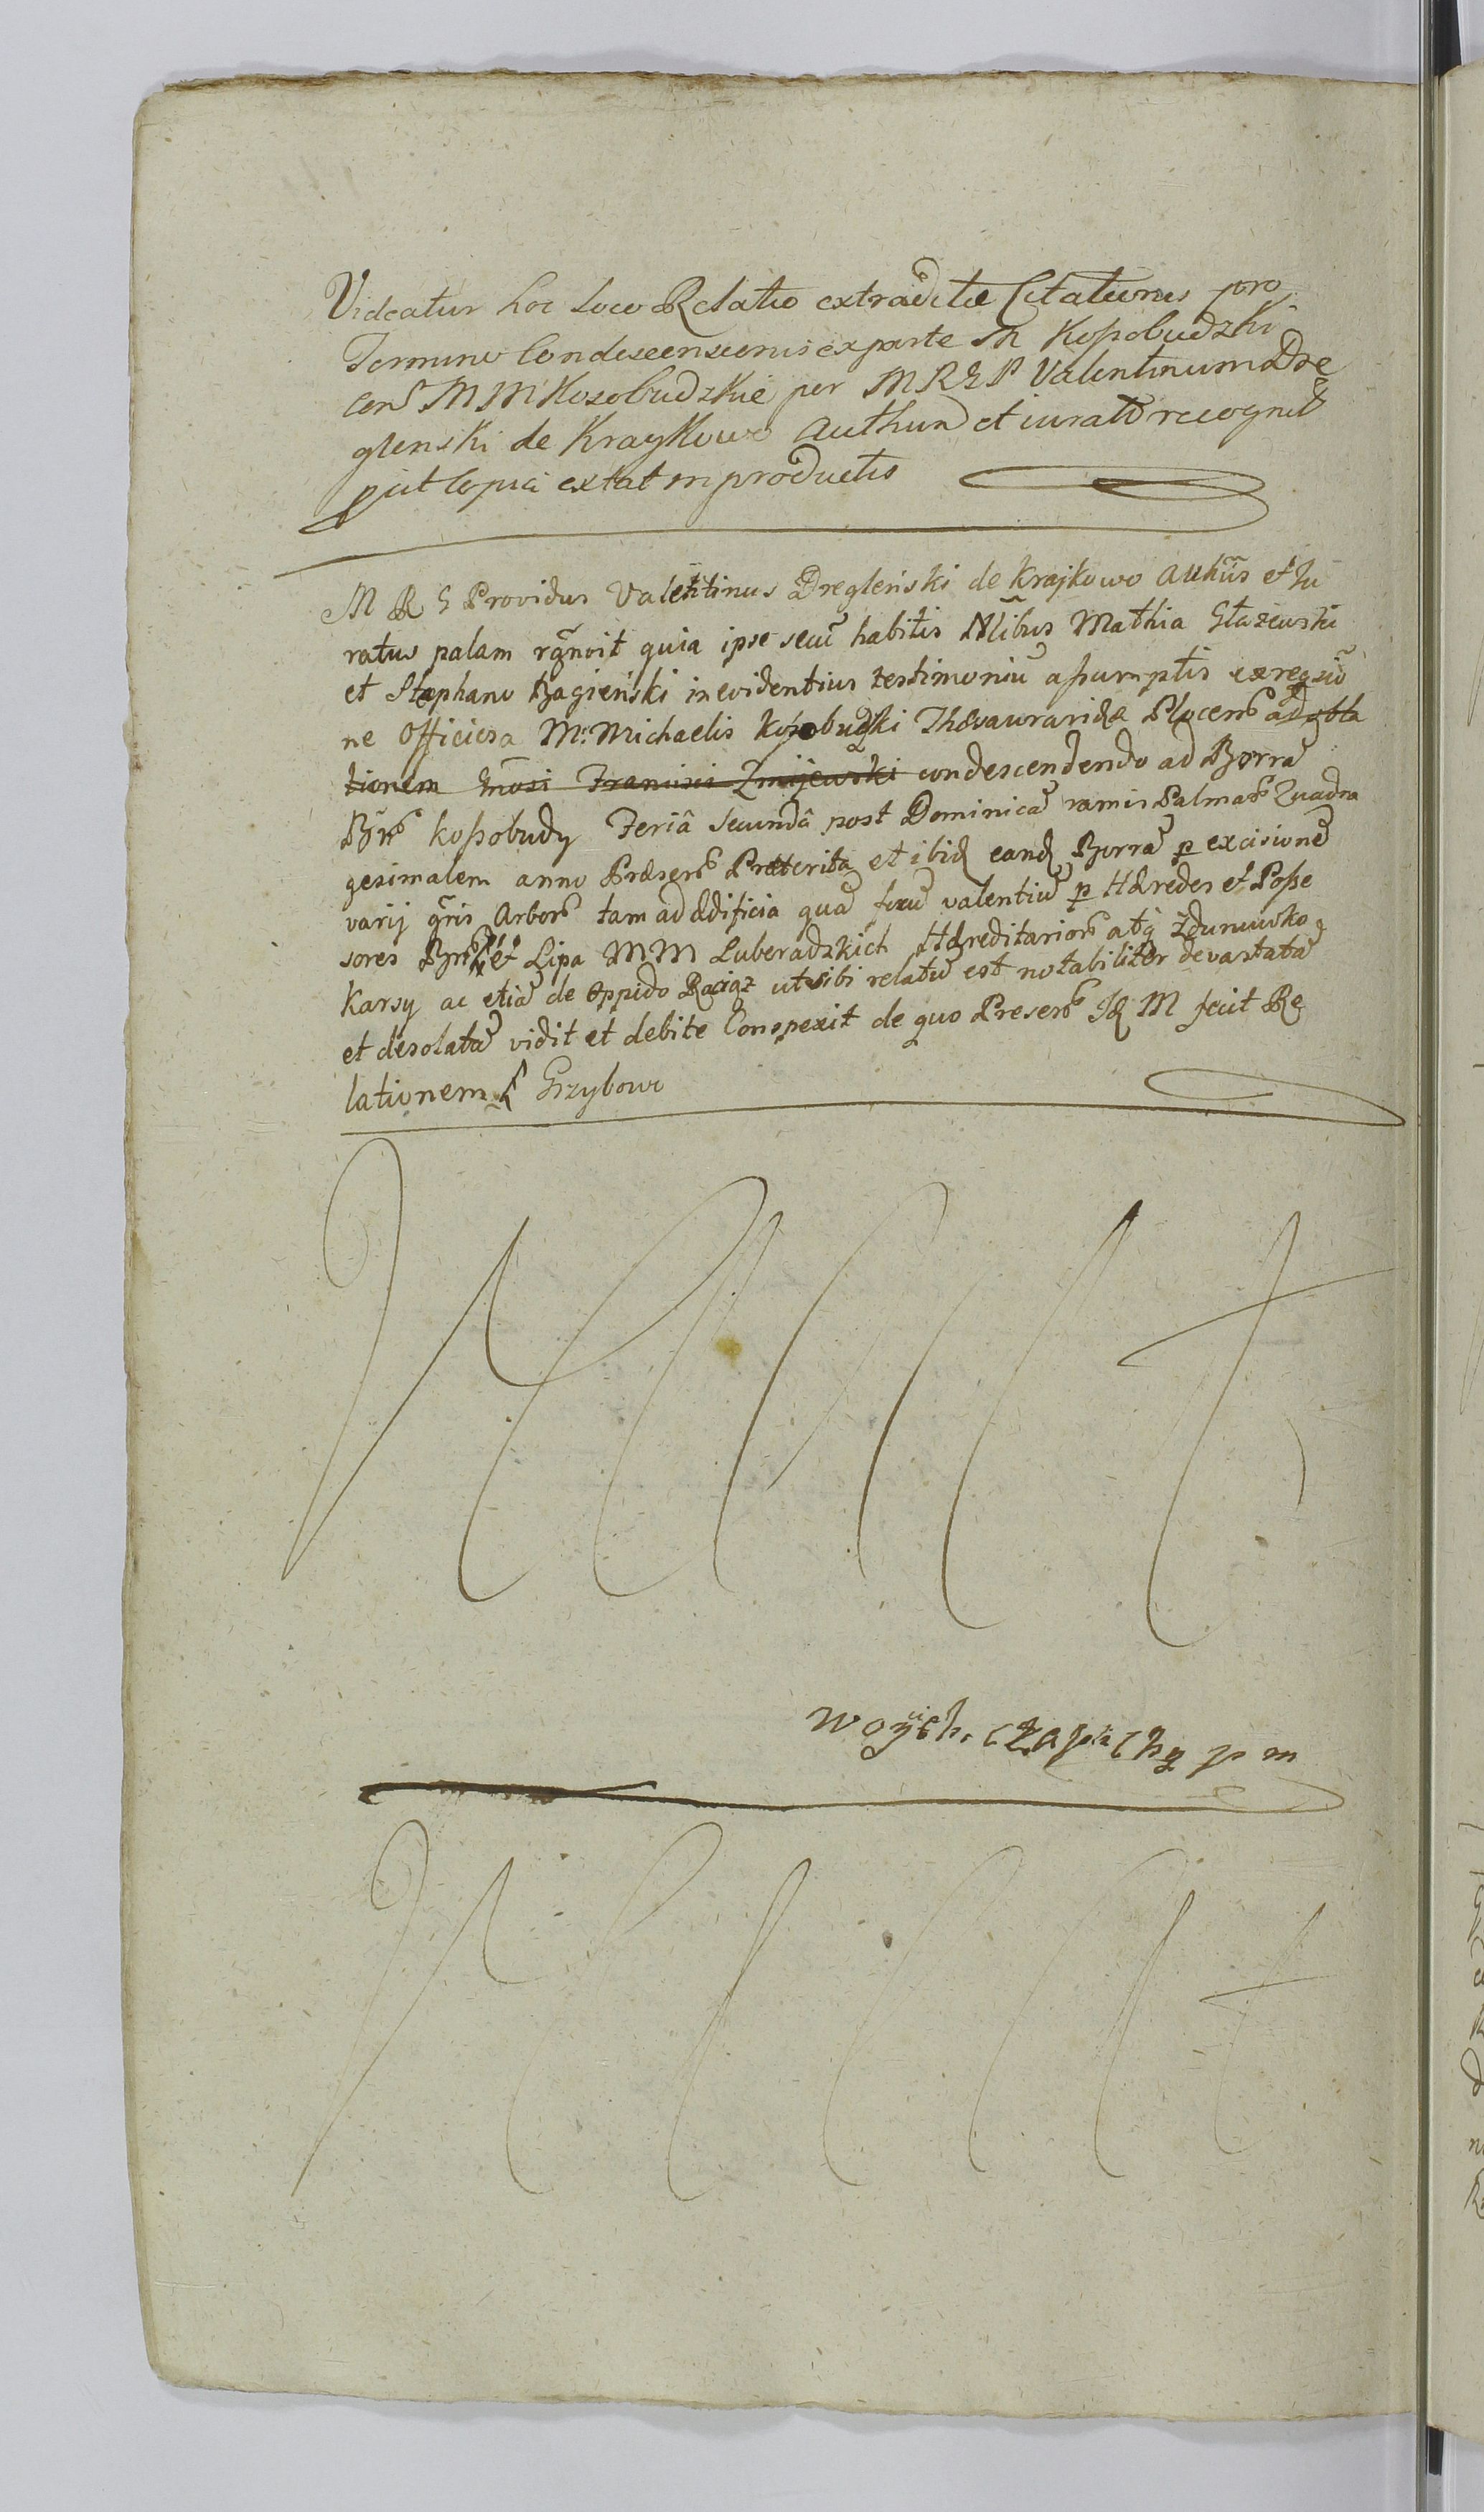 Videatur hoc loco Relatio extraditæ Citationis pro
Termino Condescensionis ex parte M Kossobudzki
con MM Kosobudzkie per MRGP Valentinum Dre
glenski de Kraykowo Authen et iurato recognit
put Copia extat in productis
MRG Providus Valentinus Dregleński de Krajkowo Authūs et Ju
ratus palam rgnoit quia ipse secū habitis Nlibus Mathia Głazewski
et Stephano Bagieński in evidentius testimoniū assumptis ex reqsio
ne Officiosa M. Michaelis Kossobudzki Thesauraridæ Plocens ad obla
tionem Gnosi Francisci Zmijewski condescendendo ad Borrā
Bnr Kossobudy Feriâ Secundâ post Dominicā ramis Palmar Quadra
gesimalem anno Præsens Præterita et ibid eand Borrā p excisionē
varij gris Arbor tam ad ædificia quā focū valentiū p Hæredes et Posse
sores Bnr et Lipa MM Luberadzkich Hæreditarior atq Zdunowsko
Karsy ac etiā de oppido Raciąż ut sibi relatū est notabiliter devastatā
et desolatā vidit et debite Conspexit de quo Presens Id M fecit Re
lationem Grzybowo
p m